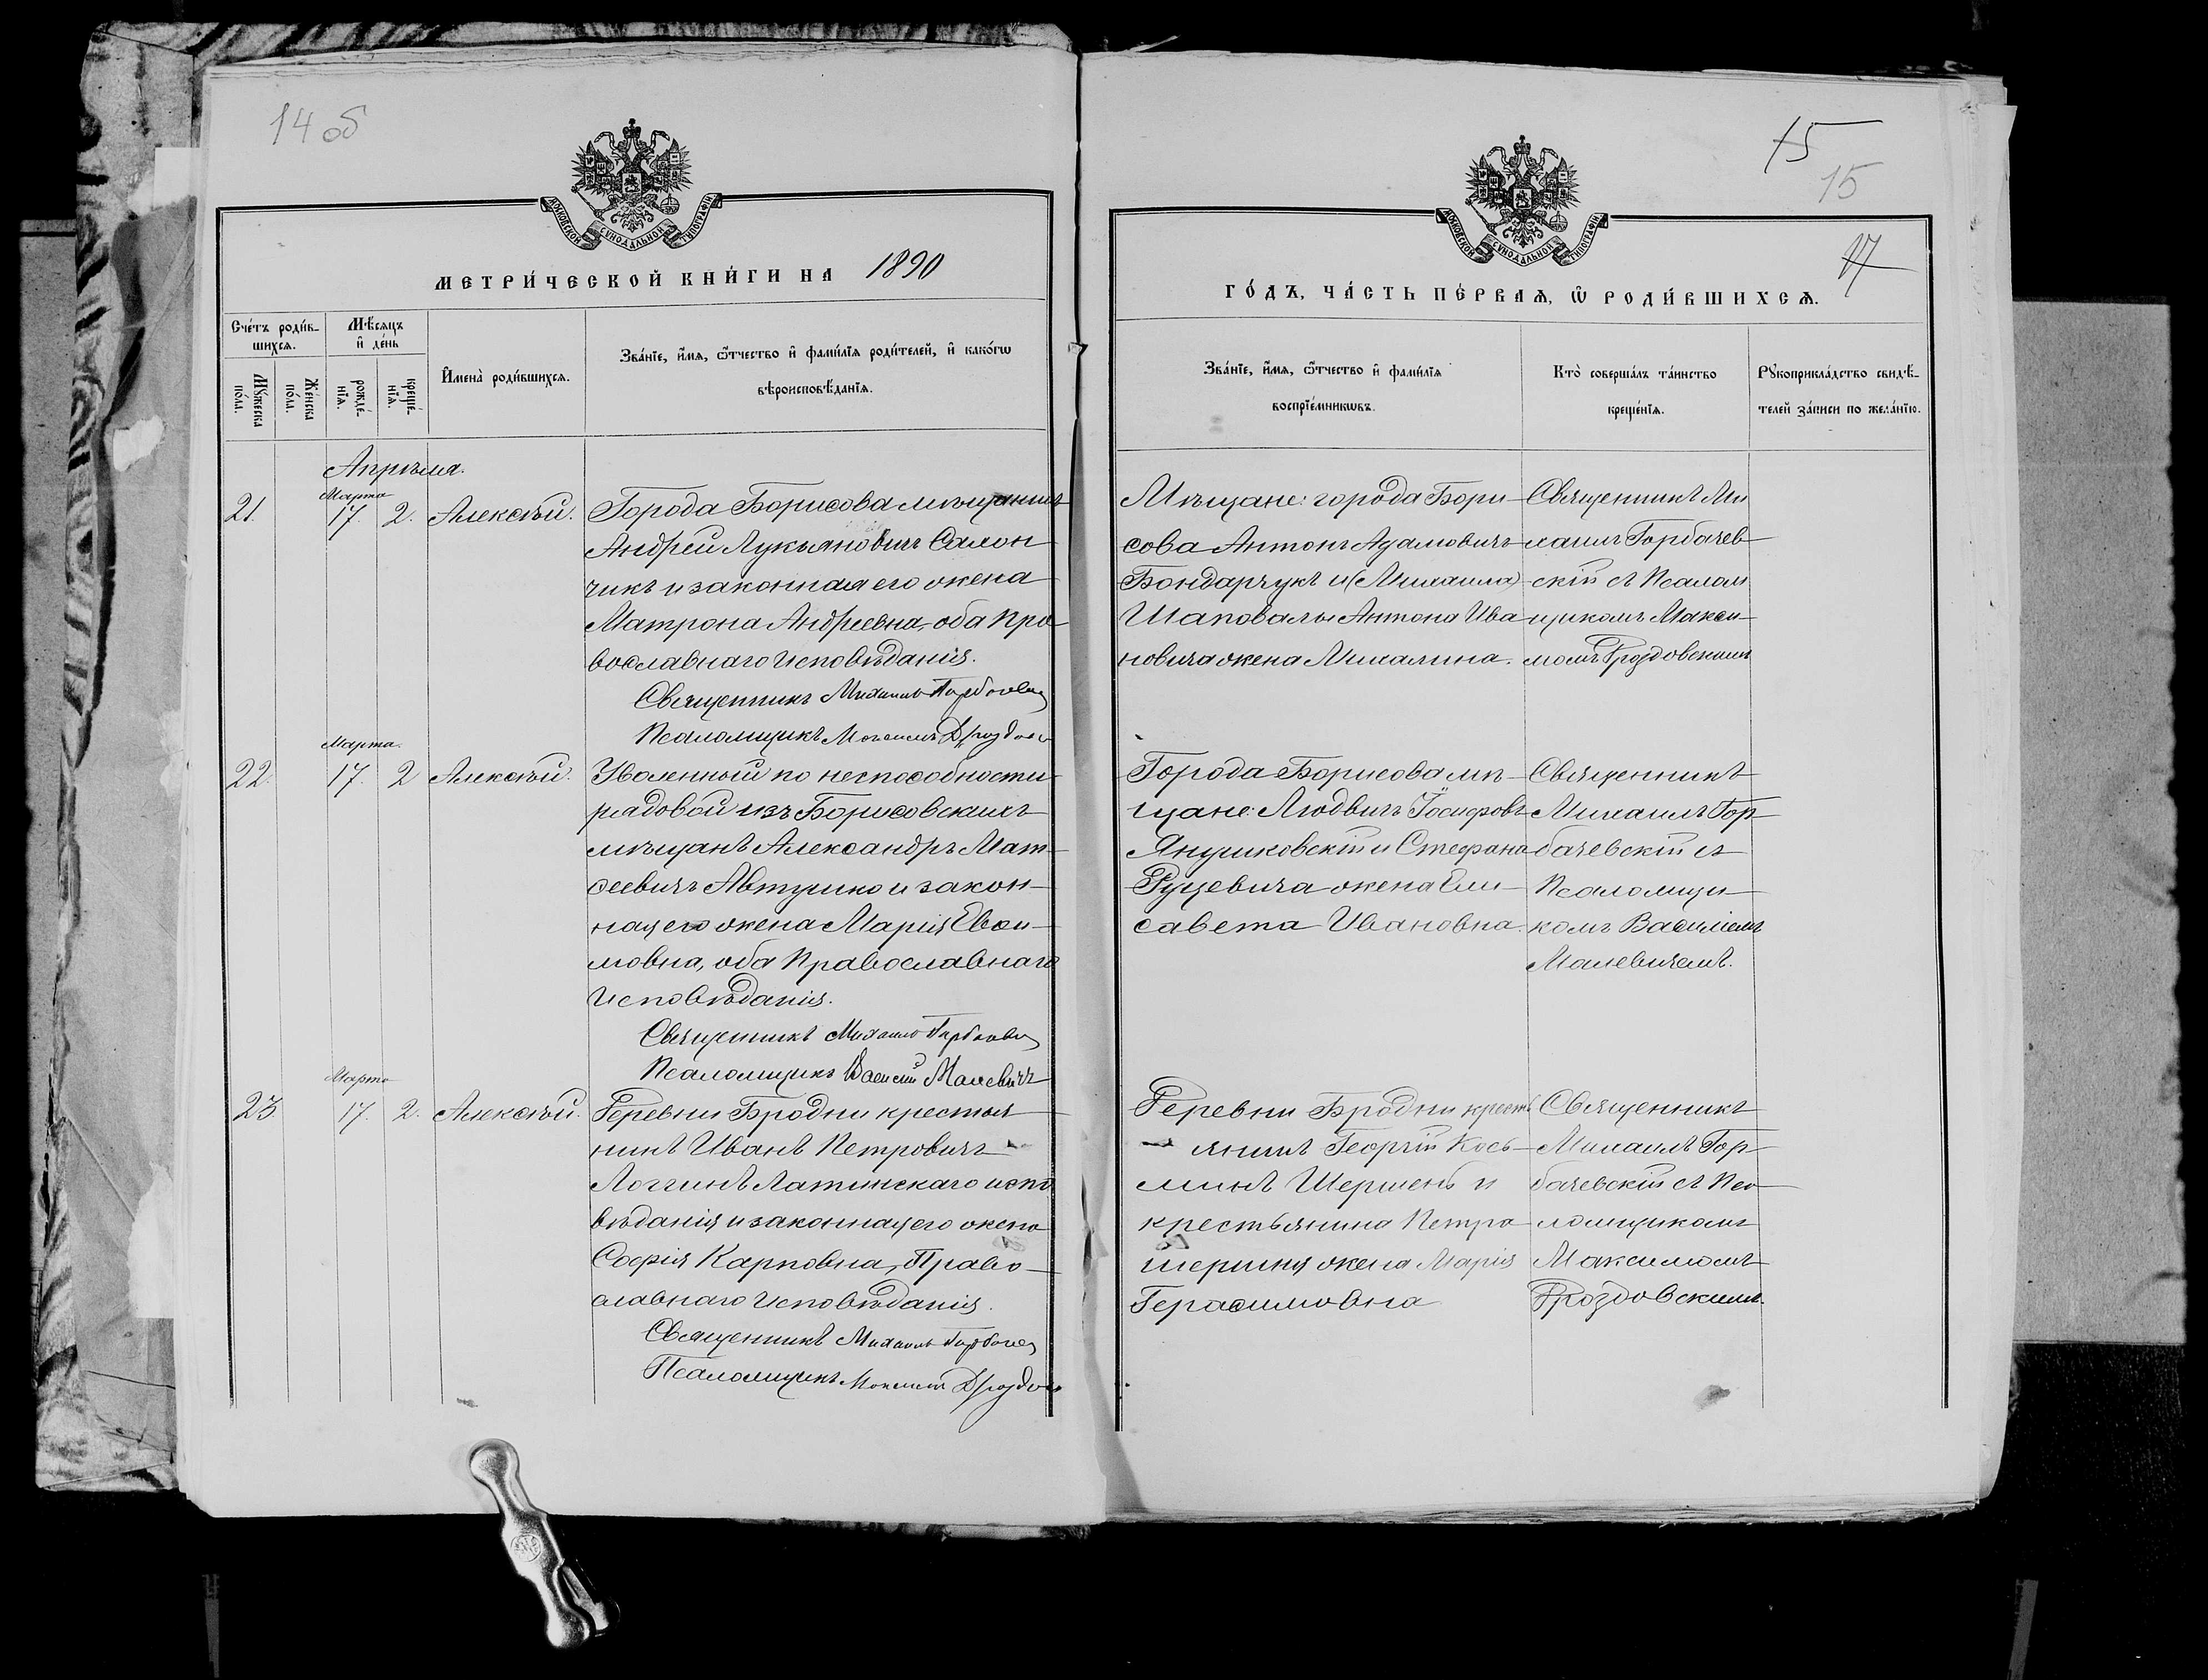 14 об
МОСКОВСКОЙ СУНОДАЛЬНОЙ ТИПОГРАФІИ
МЕТРИ́ЧЕСКОЙ КНИ́ГИ НА 1890
Сче́тъ роди́в-
шихсѧ.
Мѣ́сѧцъ
и҆ де́нь
И҆мена̀ роди́вшихсѧ.
Зва́нїе, и҆́мѧ, ѻ҆́тчество и҆ фами́лїѧ роди́телей, и҆ како́гѡ
вѣроисповѣ́данїѧ.
Мꙋ́жеска
по́ла.
Же́нска
по́ла.
рожде́-
нїѧ.
креще́-
нїѧ.
Апрѣля.
Марта
21. 17. 2. Алексѣй. Города Борисова мѣщанинъ
Андрей Лукьяновичъ Самон
чикъ и законная его жена
Матрона Андреевна, оба Пра
вославнаго Исповѣданія.
Священникъ Михаилъ Горбачев
Псаломщикъ Максимъ Дроздов
Марта.
22. 17. 2 Алексѣй. Уволенный по неспособности
рядовой изъ Борисовскихъ
мѣщанъ Александръ Мат-
ѳеевичъ Автушко и закон-
ная его жена Марія Евѳи-
мовна, оба Православнаго
Исповѣданія.
Священникъ Михаилъ Горбачев
Псаломщикъ Василій Малевичъ
Марта
23. 17. 2. Алексѣй. Деревни Бродни крестья
нинъ Иванъ Петровичъ
Логгинъ Латинскаго испо
вѣданія и законная его жена
Софія Карповна, Право-
славнаго Исповѣданія.
Священникъ Михаилъ Горбачев
Псаломщикъ Максимъ Дроздов
15
15
17
МОСКОВСКОЙ СУНОДАЛЬНОЙ ТИПОГРАФІИ
ГО́ДЪ, ЧА́СТЬ ПЕ́РВАѦ, Ѡ҆ РОДИ́ВШИХСѦ.
Зва́нїе, и҆́мѧ, ѻ҆́тчество и҆ фами́лїѧ
воспрїе́мникѡвъ.
Кто̀ соверша́лъ та́инство
креще́нїѧ.
Рꙋкоприкла́дство свидѣ́-
телей за́писи по жела́нїю.
Мѣщане: города Бори-
сова Антонъ Адамовичъ
Бондарчукъ и (Михаила)
Шаповалы Антона Ива
новича жена Михалина.
Священникъ Ми
хаилъ Горбачев-
скій съ Псалом
щикомъ Макси-
момъ Дроздовскимъ
Города Борисова мѣ-
щане: Людвигъ Іосифовъ
Янушковскій и Стефана
Руцевича жена Ели-
савета Ивановна.
Священникъ
Михаилъ Гор-
бачевскій съ
Псаломщи-
комъ Василіемъ
Малевичемъ.
Деревни Бродни крест
янинъ Георгій Кось-
минъ Шершень и
крестьянина Петра
Шершня жена Марія
Герасимовна
Священникъ
Михаилъ Гор-
бачевскій съ Пса-
ломщикомъ
Максимомъ
Дроздовскимъ.